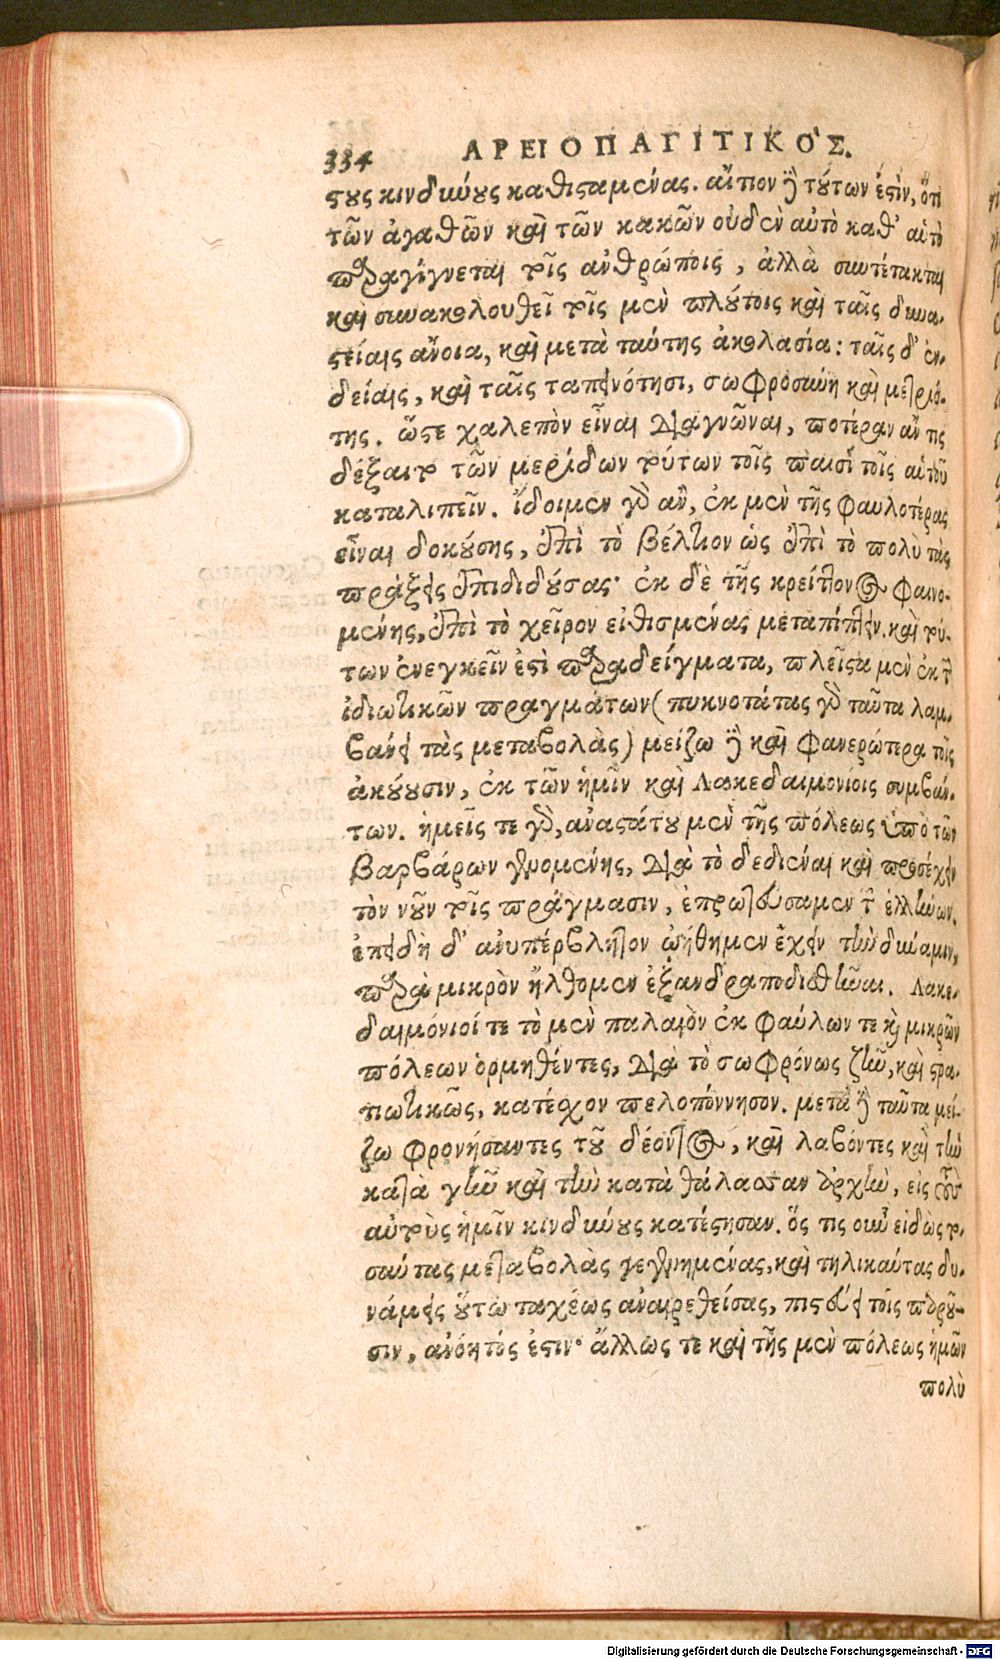 334 ΑΡΕΙΟΠΑΓΙΤΙΚΟ'Σ.
στους κινδιωύους καθισταμένας. αἴτιον δὲ τούτων ἐστὶν, ὅτι
τῶν ἀγαθῶν καὶ τῶν κακῶν οὐδὲν αὐτὸ καθ' αὑτὸ
παραγίγνεται τοῖς ἀνθρώποις, ἀλλὰ συντέτακται
καὶ συνακολουθεῖ τοῖς μὲν πλούτοις καὶ ταῖς δυνα-
στείαις ἄνοια, καὶ μετὰ ταύτης ἀκολασία: ταῖς δ' ἐν-
δείαις, καὶ ταῖς ταπεινότησι, σωφροσύνη καὶ μετριό-
της. ὥστε χαλεπὸν εἶναι διαγνῶναι, ποτέραν ἄν τις
δέξαιτο τῶν μερίδων τούτων τοῖς παισὶ τοῖς αὑτοῦ
καταλιπεῖν. ἴδοιμεν γὰρ ἂν, ἐκ μὲν τῆς φαυλοτέρας
εἶναι δοκούσης, ἐπὶ τὸ βέλτιον ὡς ἐπὶ τὸ πολὺ τὰς
πράξεις ἐπιδιδούσας· ἐκ δὲ τῆς κρείττονος φαινο-
μένης, ἐπὶ τὸ χεῖρον εἰθισμένας μεταπίπτειν. καὶ τού-
των ἐνεγκεῖν ἐστὶ παραδείγματα, πλεῖστα μὲν ἐκ τῶν
ἰδιωτικῶν πραγμάτων (πυκνοτάτας γὰρ ταῦτα λαμ-
βάνει τὰς μεταβολὰς) μείζω δὲ καὶ φανερώτερα τοῖς
ἀκούουσιν, ἐκ τῶν ἡμῖν καὶ Λακεδαιμονίοις συμβάν-
των. ἡμεῖς τε γὰρ, ἀναστάτου μὲν τῆς πόλεως ὑπὸ τῶν
βαρβάρων γενομένης, διὰ τὸ δεδιέναι καὶ προσέχειν
τὸν νοῦν τοῖς πράγμασιν, ἐπρωτεύσαμεν τῶν ἑλλήνων.
ἐπειδὴ δ' ἀνυπέρβλητον ᾠήθημεν ἔχειν τὴν δύναμιν,
παρὰ μικρὸν ἤλθομεν ἐξανδραποδισθῆναι. Λακε-
δαιμόνιοί τε τὸ μὲν παλαιὸν ἐκ φαύλων τε καὶ μικρῶν
πόλεων ὁρμηθέντες, διὰ τὸ σωφρόνως ζῆν, καὶ στρα-
τιωτικῶς, κατέσχον πελοπόννησον. μετὰ δὲ ταῦτα μεί-
ζω φρονήσαντες τοῦ δέοντος, καὶ λαβόντες καὶ τὴν
κατὰ γῆν καὶ τὴν κατὰ θάλασσαν ἀρχὴν, εἰς τοὺς
αὐτοὺς ἡμῖν κινδύνους κατέστησαν. ὅς τις οὖν εἰδὼς το-
σαύτας μεταβολὰς γεγενημένας, καὶ τηλικαύτας δυ-
νάμεις οὕτω ταχέως ἀναιρεθείσας, πιστεύει τοῖς παροῦ-
σιν, ἀνόητός ἐστιν· ἄλλως τε καὶ τῆς μὲν πόλεως ἡμῶν
πολὺ
Digitalisierung gefördert durch die Deutsche Forschungsgemeinschaft - DFG